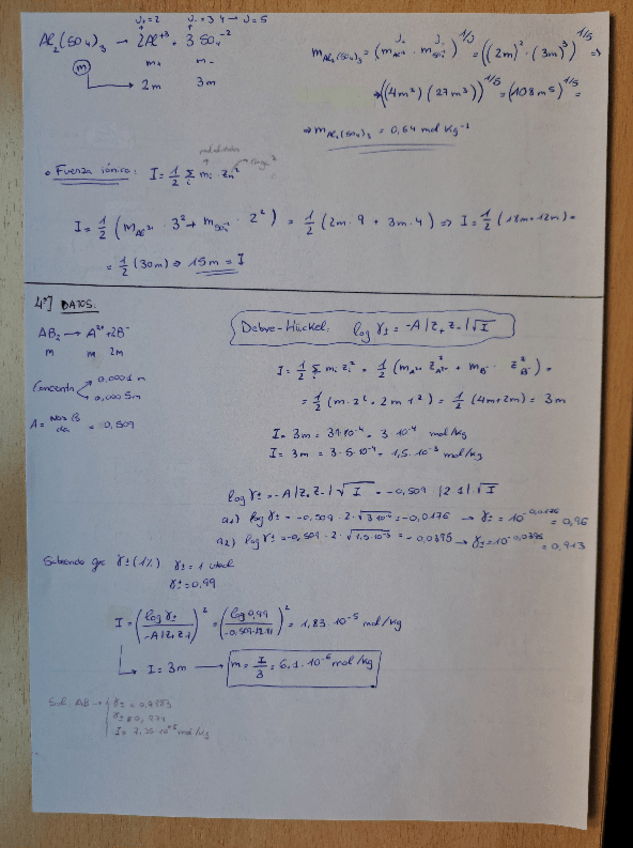 ν₊=2 ν₋=3 → ν=5
Al₂(SO₄)₃ → 2Al⁺³ + 3SO₄⁻²
m m₊ m₋
2m 3m
m Al₂(SO₄)₃ = (m Al³⁺ ^ν₊ · m SO₄²⁻ ^ν₋)^1/ν = ((2m)² · (3m)³)^1/5 ⇒
⇒ ((4m²)(27m³))^1/5 = (108m⁵)^1/5 =
⇒ m Al₂(SO₄)₃ = 0,64 mol Kg⁻¹
• Fuerza iónica: I = 1/2 Σᵢ mᵢ · zᵢ²
I = 1/2 (m Al³⁺ · 3² + m SO₄²⁻ · 2²) = 1/2 (2m · 9 + 3m · 4) ⇒ I = 1/2 (18m + 12m) =
= 1/2 (30m) ⇒ 15m = I
4º] DATOS:
AB₂ → A²⁺ + 2B⁻
m m 2m
Concentra 0,0001 m
0,0005m
A = da = 0,509
Debye-Hückel: log γ± = -A |z₊ z₋| √I
I = 1/2 Σᵢ mᵢ zᵢ² = 1/2 (m A²⁺ z² A²⁺ + m B⁻ · z² B⁻) =
= 1/2 (m · 2² + 2m · 1²) = 1/2 (4m + 2m) = 3m
I = 3m = 3·10⁻⁴ = 3·10⁻⁴ mol/kg
I = 3m = 3·5·10⁻⁴ = 1,5·10⁻³ mol/kg
log γ± = -A |z₊ z₋| √I = -0,509 |2·1| √I
a₁) log γ± = -0,509 · 2 · √3·10⁻⁴ = -0,0176 → γ± = 10^-0,0176 = 0,96
a₂) log γ± = -0,509 · 2 · √1,5·10⁻³ = -0,0395 → γ± = 10^-0,0395 = 0,913
Sabiendo que γ± (1%) γ± = 1
γ± = 0,99
I = (log γ± / -A|z₊ z₋|)² = (log 0,99 / -0,509·|2·1|)² = 1,83·10⁻⁵ mol/Kg
I = 3m → m = I/3 = 6,1·10⁻⁶ mol/kg
Sol. AB →
γ± =
I = 7,35·10⁻⁵ mol/kg